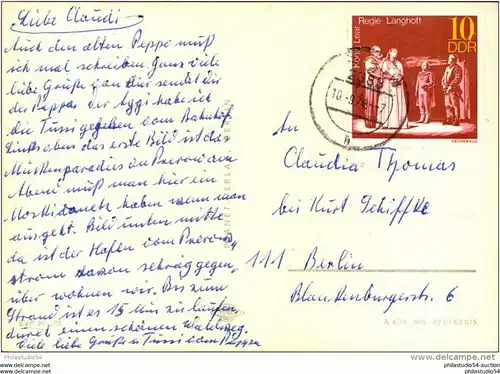 Liebe Claudi!
Auch den alten Peppo muß
ich mal schreiben. Ganz viele
liebe Grüße an dir sendet dir
der Pappa. Der Aggi habe ich
die Tussi gegeben vom Bahnhof.
Links oben das erste Bild ist das
Mückenparadies in Prerow am
Abend muß man hier ein
Moskitonetz haben wenn man
ausgeht. Bild unten mitte
da ist der Hafen vom Prerow
strom davon schräg gegen
über wohnen wir. Bis zum
Strand ist es 15 Min zu laufen,
durch einen schönen Waldweg.
Viele liebe Grüße u Tussi
PLANET-VERLAG BERLIN
König Lear Regie: Langhoff
10
DDR
10.-9.
An
Claudia Thomas
bei Kurt Schiffke
111 Berlin
Blankenburgerstr. 6
philastudio54@delcampe.net